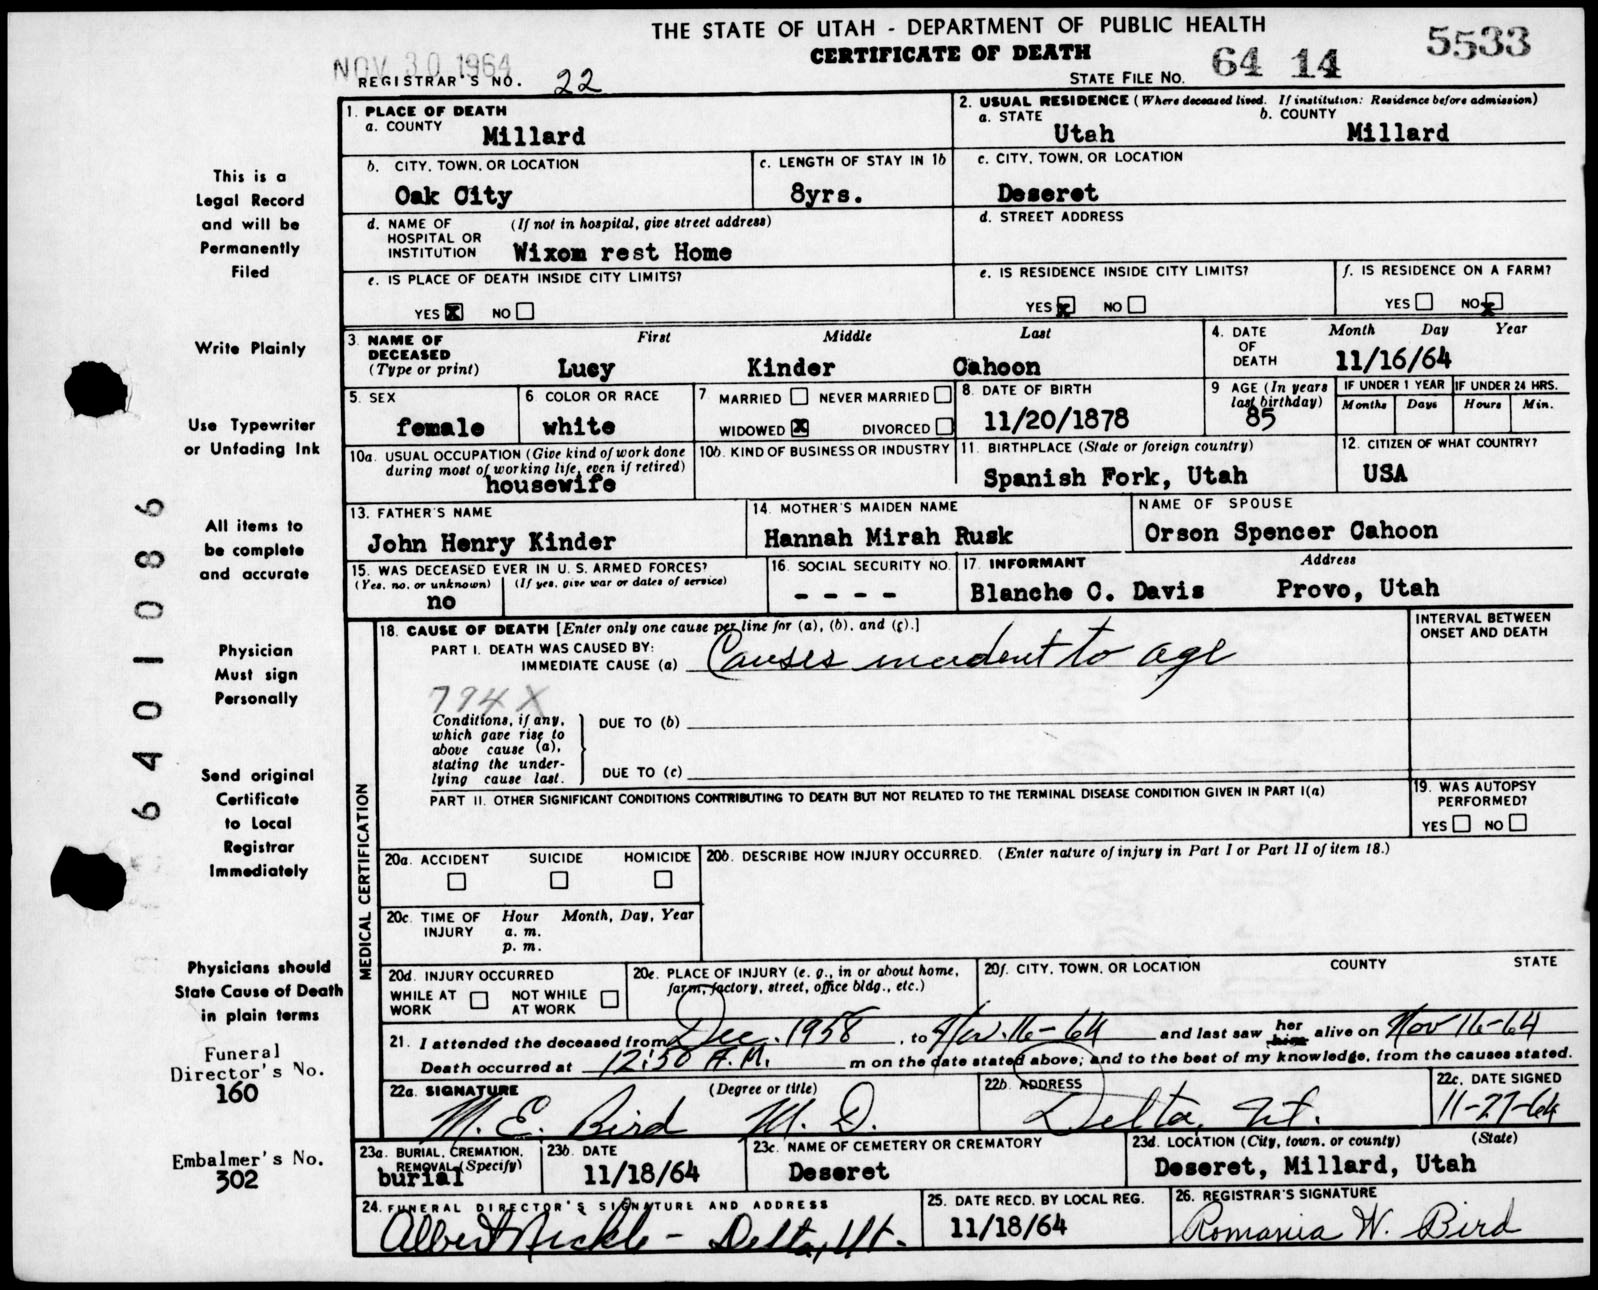 THE STATE OF UTAH - DEPARTMENT OF PUBLIC HEALTH
CERTIFICATE OF DEATH
5533
NOV 30 1964
REGISTRAR'S NO. 22
STATE FILE NO. 64 14
1. PLACE OF DEATH
a. COUNTY Millard
2. USUAL RESIDENCE (Where deceased lived. If institution: Residence before admission)
a. STATE Utah b. COUNTY Millard
b. CITY, TOWN, OR LOCATION Oak City
c. LENGTH OF STAY IN 1b 8yrs.
c. CITY, TOWN, OR LOCATION Deseret
d. NAME OF HOSPITAL OR INSTITUTION (If not in hospital, give street address) Wixom rest Home
d. STREET ADDRESS
e. IS PLACE OF DEATH INSIDE CITY LIMITS?
YES X NO
e. IS RESIDENCE INSIDE CITY LIMITS?
YES X NO
f. IS RESIDENCE ON A FARM?
YES NO X
3. NAME OF DECEASED (Type or print) First Middle Last
Lucy Kinder Cahoon
4. DATE OF DEATH Month Day Year
11/16/64
5. SEX female
6 COLOR OR RACE white
7 MARRIED NEVER MARRIED
WIDOWED X DIVORCED
8. DATE OF BIRTH 11/20/1878
9 AGE (In years last birthday) 85
IF UNDER 1 YEAR Months Days
IF UNDER 24 HRS. Hours Min.
10a. USUAL OCCUPATION (Give kind of work done during most of working life, even if retired)
housewife
10b. KIND OF BUSINESS OR INDUSTRY
11. BIRTHPLACE (State or foreign country)
Spanish Fork, Utah
12. CITIZEN OF WHAT COUNTRY?
USA
13. FATHER'S NAME
John Henry Kinder
14. MOTHER'S MAIDEN NAME
Hannah Mirah Rusk
NAME OF SPOUSE
Orson Spencer Cahoon
15. WAS DECEASED EVER IN U.S. ARMED FORCES?
(Yes, no, or unknown) (If yes, give war or dates of service)
no
16. SOCIAL SECURITY NO.
- - - -
17. INFORMANT Address
Blanche C. Davis Provo, Utah
MEDICAL CERTIFICATION
18. CAUSE OF DEATH [Enter only one cause per line for (a), (b), and (c).]
INTERVAL BETWEEN ONSET AND DEATH
PART I. DEATH WAS CAUSED BY:
IMMEDIATE CAUSE (a) Causes incident to age
794X
Conditions, if any, which gave rise to above cause (a), stating the underlying cause last.
DUE TO (b)
DUE TO (c)
PART II. OTHER SIGNIFICANT CONDITIONS CONTRIBUTING TO DEATH BUT NOT RELATED TO THE TERMINAL DISEASE CONDITION GIVEN IN PART I(a)
19. WAS AUTOPSY PERFORMED?
YES NO
20a. ACCIDENT SUICIDE HOMICIDE
20b. DESCRIBE HOW INJURY OCCURRED. (Enter nature of injury in Part I or Part II of item 18.)
20c. TIME OF INJURY Hour Month, Day, Year
a. m.
p. m.
20d. INJURY OCCURRED
WHILE AT WORK NOT WHILE AT WORK
20e. PLACE OF INJURY (e. g., in or about home, farm, factory, street, office bldg., etc.)
20f. CITY, TOWN, OR LOCATION COUNTY STATE
21. I attended the deceased from Dec. 1958, to Nov. 16-64 and last saw her him alive on Nov 16-64
Death occurred at 12:50 A.M. m on the date stated above; and to the best of my knowledge, from the causes stated.
22a. SIGNATURE (Degree or title)
M. E. Bird M. D.
22b. ADDRESS
Delta, Ut.
22c. DATE SIGNED
11-27-64
23a. BURIAL, CREMATION, REMOVAL (Specify)
burial
23b. DATE
11/18/64
23c. NAME OF CEMETERY OR CREMATORY
Deseret
23d. LOCATION (City, town, or county) (State)
Deseret, Millard, Utah
24. FUNERAL DIRECTOR'S SIGNATURE AND ADDRESS
Albert Nickle - Delta, Ut.
25. DATE RECD. BY LOCAL REG.
11/18/64
26. REGISTRAR'S SIGNATURE
Romania W. Bird
This is a
Legal Record
and will be
Permanently
Filed
Write Plainly
Use Typewriter
or Unfading Ink
All items to
be complete
and accurate
Physician
Must sign
Personally
Send original
Certificate
to Local
Registrar
Immediately
Physicians should
State Cause of Death
in plain terms
Funeral
Director's No.
160
Embalmer's No.
302
6401086